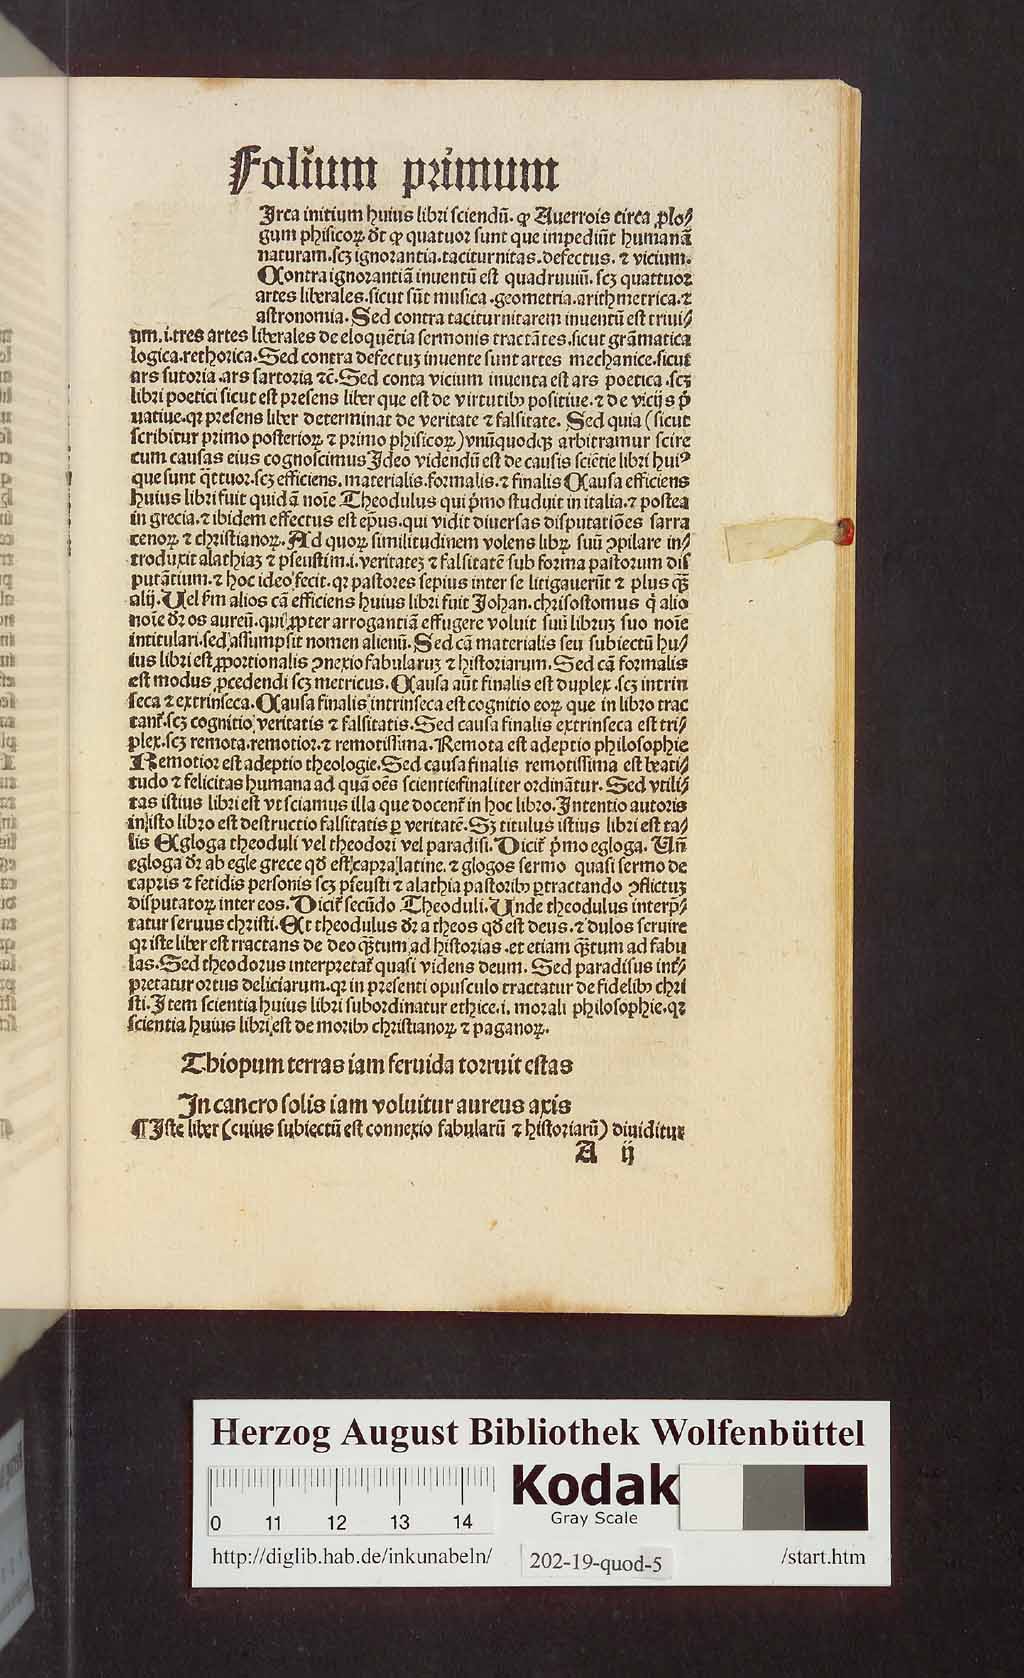 Folium primum
Irca initium huius libri sciendū. ꝙ Auerrois circa ꝓlo⸗
gum phisicoꝝ dt̄ ꝙ quatuor sunt que impediūt humanā
naturam.scꝫ ignorantia.taciturnitas.defectus. ⁊ vicium.
Contra ignorantiā inuentū est quadruuiū. scꝫ quattuor
artes liberales.sicut sūt musica.geometria.arithmetrica.⁊
astronomia. Sed contra taciturnitarem inuentū est triui⸗
um.i.tres artes liberales de eloquētia sermonis tractātes.sicut grāmatica
logica.rethorica.Sed contra defectuꝫ inuente sunt artes mechanice.sicut
ars sutoria.ars sartoria ⁊c̄.Sed conta vicium inuenta est ars poetica.scꝫ
libri poetici sicut est presens liber que est de virtutibꝰ positiue.⁊ de vicijs p̄
uatiue.qꝛ presens liber determinat de veritate ⁊ falsitate. Sed quia (sicut
scribitur primo posterioꝝ ⁊ primo phisicoꝝ) vnūquodqꝫ arbitramur scire
cum causas eius cognoscimus Ideo videndū est de causis sciētie libri huiꝰ
que sunt q̄ttuor.scꝫ efficiens.materialis.formalis.⁊ finalis Causa efficiens
huius libri fuit quidā noīe Theodulus qui p̄mo studuit in italia.⁊ postea
in grecia.⁊ ibidem effectus est ep̄us.qui vidit diuersas disputatiōes sarra
cenoꝝ ⁊ christianoꝝ. Ad quoꝝ similitudinem volens libꝝ suū ꝯpilare in⸗
troduxit alathiaꝫ ⁊ pseustim.i.veritateꝫ ⁊ falsitatē sub forma pastorum dis
putātium.⁊ hoc ideo fecit.qꝛ pastores sepius inter se litigauerūt ⁊ plus qꝫ̄
alij.Uel ẜm alios cā efficiens huius libri fuit Johan.chrisostomus q̇ alio
noīe dr̄ os aureū.qui ꝓpter arrogantiā effugere voluit suū libruꝫ suo noīe
intitulari.sed assumpsit nomen alienū. Sed cā materialis seu subiectū hu⸗
ius libri est ꝓportionalis ꝯnexio fabularuꝫ ⁊ historiarum. Sed cā formalis
est modus ꝓcedendi scꝫ metricus. Causa aūt finalis est duplex.scꝫ intrin
seca ⁊ extrinseca. Causa finalis intrinseca est cognitio eoꝝ que in libro trac
tant̄.scꝫ cognitio veritatis ⁊ falsitatis.Sed causa finalis extrinseca est tri⸗
plex.scꝫ remota.remotior.⁊ remotissima. Remota est adeptio philosophie
Remotior est adeptio theologie.Sed causa finalis remotissima est beati⸗
tudo ⁊ felicitas humana ad quā oēs scientie finaliter ordinātur. Sed vtili⸗
tas istius libri est vt sciamus illa que docent̄ in hoc libro. Intentio autoris
in isto libro est destructio falsitatis ꝑ veritatē. Sꝫ titulus istius libri est ta⸗
lis Egloga theoduli vel theodori vel paradisi. Dicit̄ p̄mo egloga. Un̄
egloga dr̄ ab egle grece qd̄ est capra latine. ⁊ glogos sermo quasi sermo de
capris ⁊ fetidis personis scꝫ pseusti ⁊ alathia pastoribꝰ ꝑtractando ꝯflictuꝫ
disputatoꝝ inter eos. Dicit̄ secūdo Theoduli. Unde theodulus interp̄⸗
tatur seruus christi.Et theodulus dr̄ a theos qd̄ est deus.⁊ dulos seruire
qꝛ iste liber est rractans de deo qꝫ̄tum ad historias.et etiam qꝫ̄tum ad fabu
las.Sed theodorus interpretat̄ quasi videns deum. Sed paradisus int̄⸗
pretatur ortus deliciarum.qꝛ in presenti opusculo tractatur de fidelibꝰ chri
sti.Item scientia huius libri subordinatur ethice.i. morali philosophie.qꝛ
scientia huius libri est de moribꝰ christianoꝝ ⁊ paganoꝝ.
Thiopum terras iam feruida torruit estas
In cancro solis iam voluitur aureus axis
¶ Iste liber (cuius subiectū est connexio fabularū ⁊ historiarū) diuiditur
A ij
Herzog August Bibliothek Wolfenbüttel
Kodak
Gray Scale
0 11 12 13 14
http://diglib.hab.de/inkunabeln/ 202-19-quod-5 /start.htm